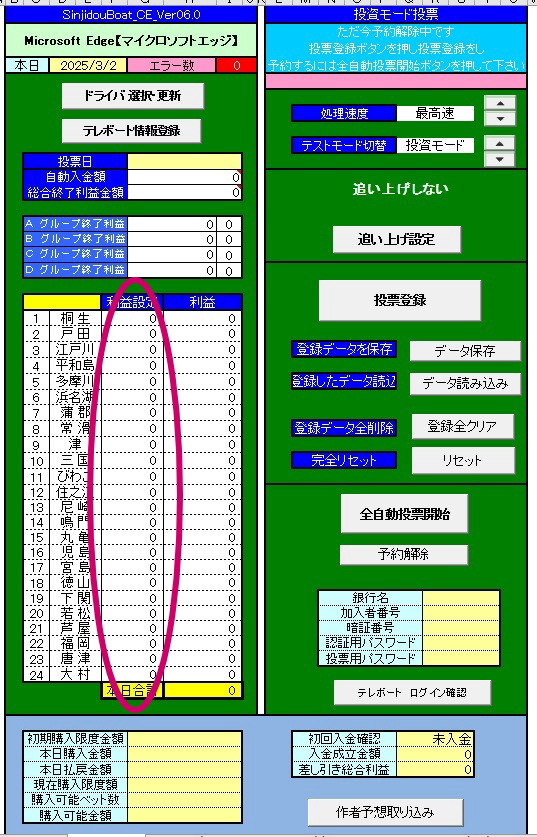 SinjidouBoat_CE_Ver06.0
Microsoft Edge【マイクロソフトエッジ】
本日 2025/3/2 エラー数 0
ドライバ選択・更新
テレボート情報登録
投票日
自動入金額 0
総合終了利益金額 0
A グループ終了利益 0 0
B グループ終了利益 0 0
C グループ終了利益 0 0
D グループ終了利益 0 0
利益設定 利益
1 桐生 0 0
2 戸田 0 0
3 江戸川 0 0
4 平和島 0 0
5 多摩川 0 0
6 浜名湖 0 0
7 蒲郡 0 0
8 常滑 0 0
9 津 0 0
10 三国 0 0
11 びわこ 0 0
12 住之江 0 0
13 尼崎 0 0
14 鳴門 0 0
15 丸亀 0 0
16 児島 0 0
17 宮島 0 0
18 徳山 0 0
19 下関 0 0
20 若松 0 0
21 芦屋 0 0
22 福岡 0 0
23 唐津 0 0
24 大村 0 0
本日合計 0
初期購入限度金額
本日購入金額
本日払戻金額
現在購入限度額
購入可能ベット数
購入可能金額
投資モード投票
ただ今予約解除中です
投票登録ボタンを押し投票登録をし
予約するには全自動投票開始ボタンを押して下さい
処理速度 最高速
テストモード切替 投資モード
追い上げしない
追い上げ設定
投票登録
登録データを保存 データ保存
登録したデータ読込 データ読み込み
登録データ全削除 登録全クリア
完全リセット リセット
全自動投票開始
予約解除
銀行名
加入者番号
暗証番号
認証用パスワード
投票用パスワード
テレボート ログイン確認
初回入金確認 未入金
入金成立金額 0
差し引き総合利益 0
作者予想取り込み